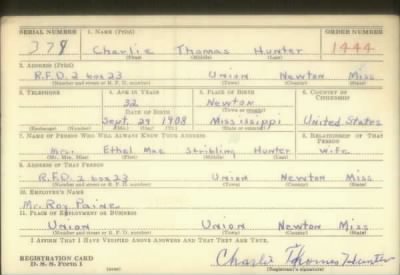 SERIAL NUMBER 1. NAME (Print) ORDER NUMBER
378 Charlie Thomas Hunter 1444
(First) (Middle) (Last)
2. ADDRESS (Print)
R.F.D. 2 box 23 Union Newton Miss
(Number and street or R. F. D. number) (Town) (County) (State)
3. TELEPHONE 4. AGE IN YEARS 5. PLACE OF BIRTH 6. COUNTRY OF CITIZENSHIP
32 Newton
DATE OF BIRTH (Town or county)
Sept. 29 1908 Mississippi United States
(Exchange) (Number) (Mo.) (Day) (Yr.) (State or country)
7. NAME OF PERSON WHO WILL ALWAYS KNOW YOUR ADDRESS 8. RELATIONSHIP OF THAT PERSON
Mrs. Ethel Mae Stribling Hunter Wife
(Mr., Mrs., Miss) (First) (Middle) (Last)
9. ADDRESS OF THAT PERSON
R.F.D. 2 box 23 Union Newton Miss
(Number and street or R. F. D. number) (Town) (County) (State)
10. EMPLOYER'S NAME
Mr. Roy Paine
11. PLACE OF EMPLOYMENT OR BUSINESS
Union Union Newton Miss
(Number and street or R. F. D. number) (Town) (County) (State)
I AFFIRM THAT I HAVE VERIFIED ABOVE ANSWERS AND THAT THEY ARE TRUE.
REGISTRATION CARD
D. S. S. Form 1 (over) Charlie Thomas Hunter
(Registrant's signature)